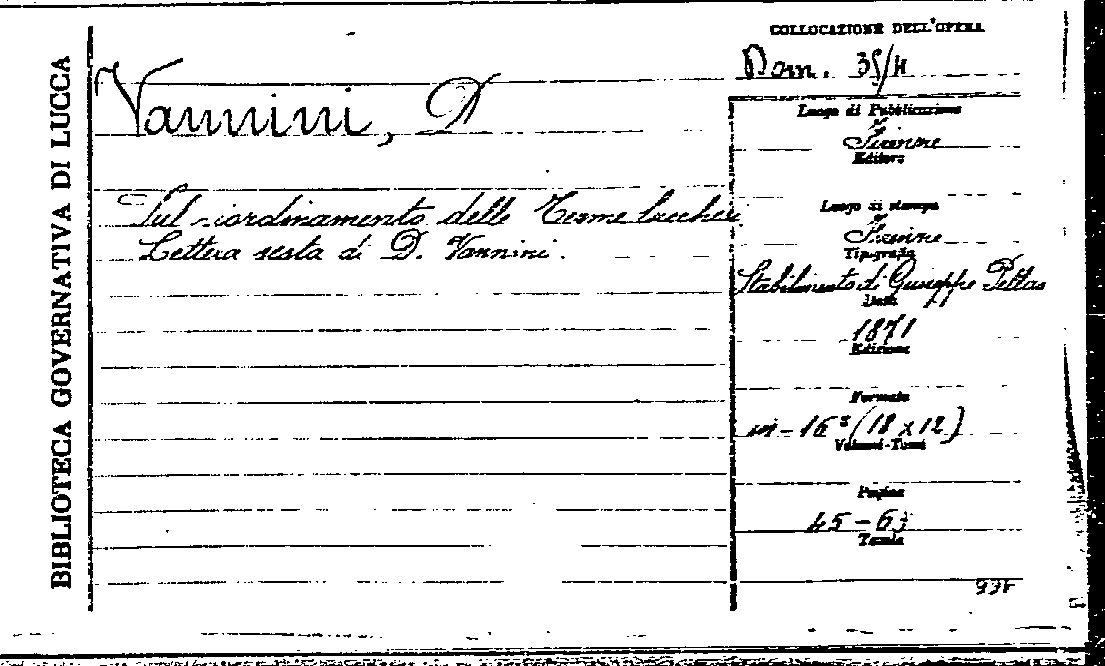 BIBLIOTECA GOVERNATIVA DI LUCCA
COLLOCAZIONE DELL'OPERA
Dom. 35/4
Vannini, D
Luogo di Pubblicazione
Firenze
Editore
Sul riordinamento delle Terme lucchesi
Lettera sesta di D. Vannini.
Luogo di stampa
Firenze
Tipografia
Stabilimento di Giuseppe Pellas
Data
1871
Edizione
Formato
in-16° (18 x 12)
Volumi-Tomi
Pagine
45-63
Tavole